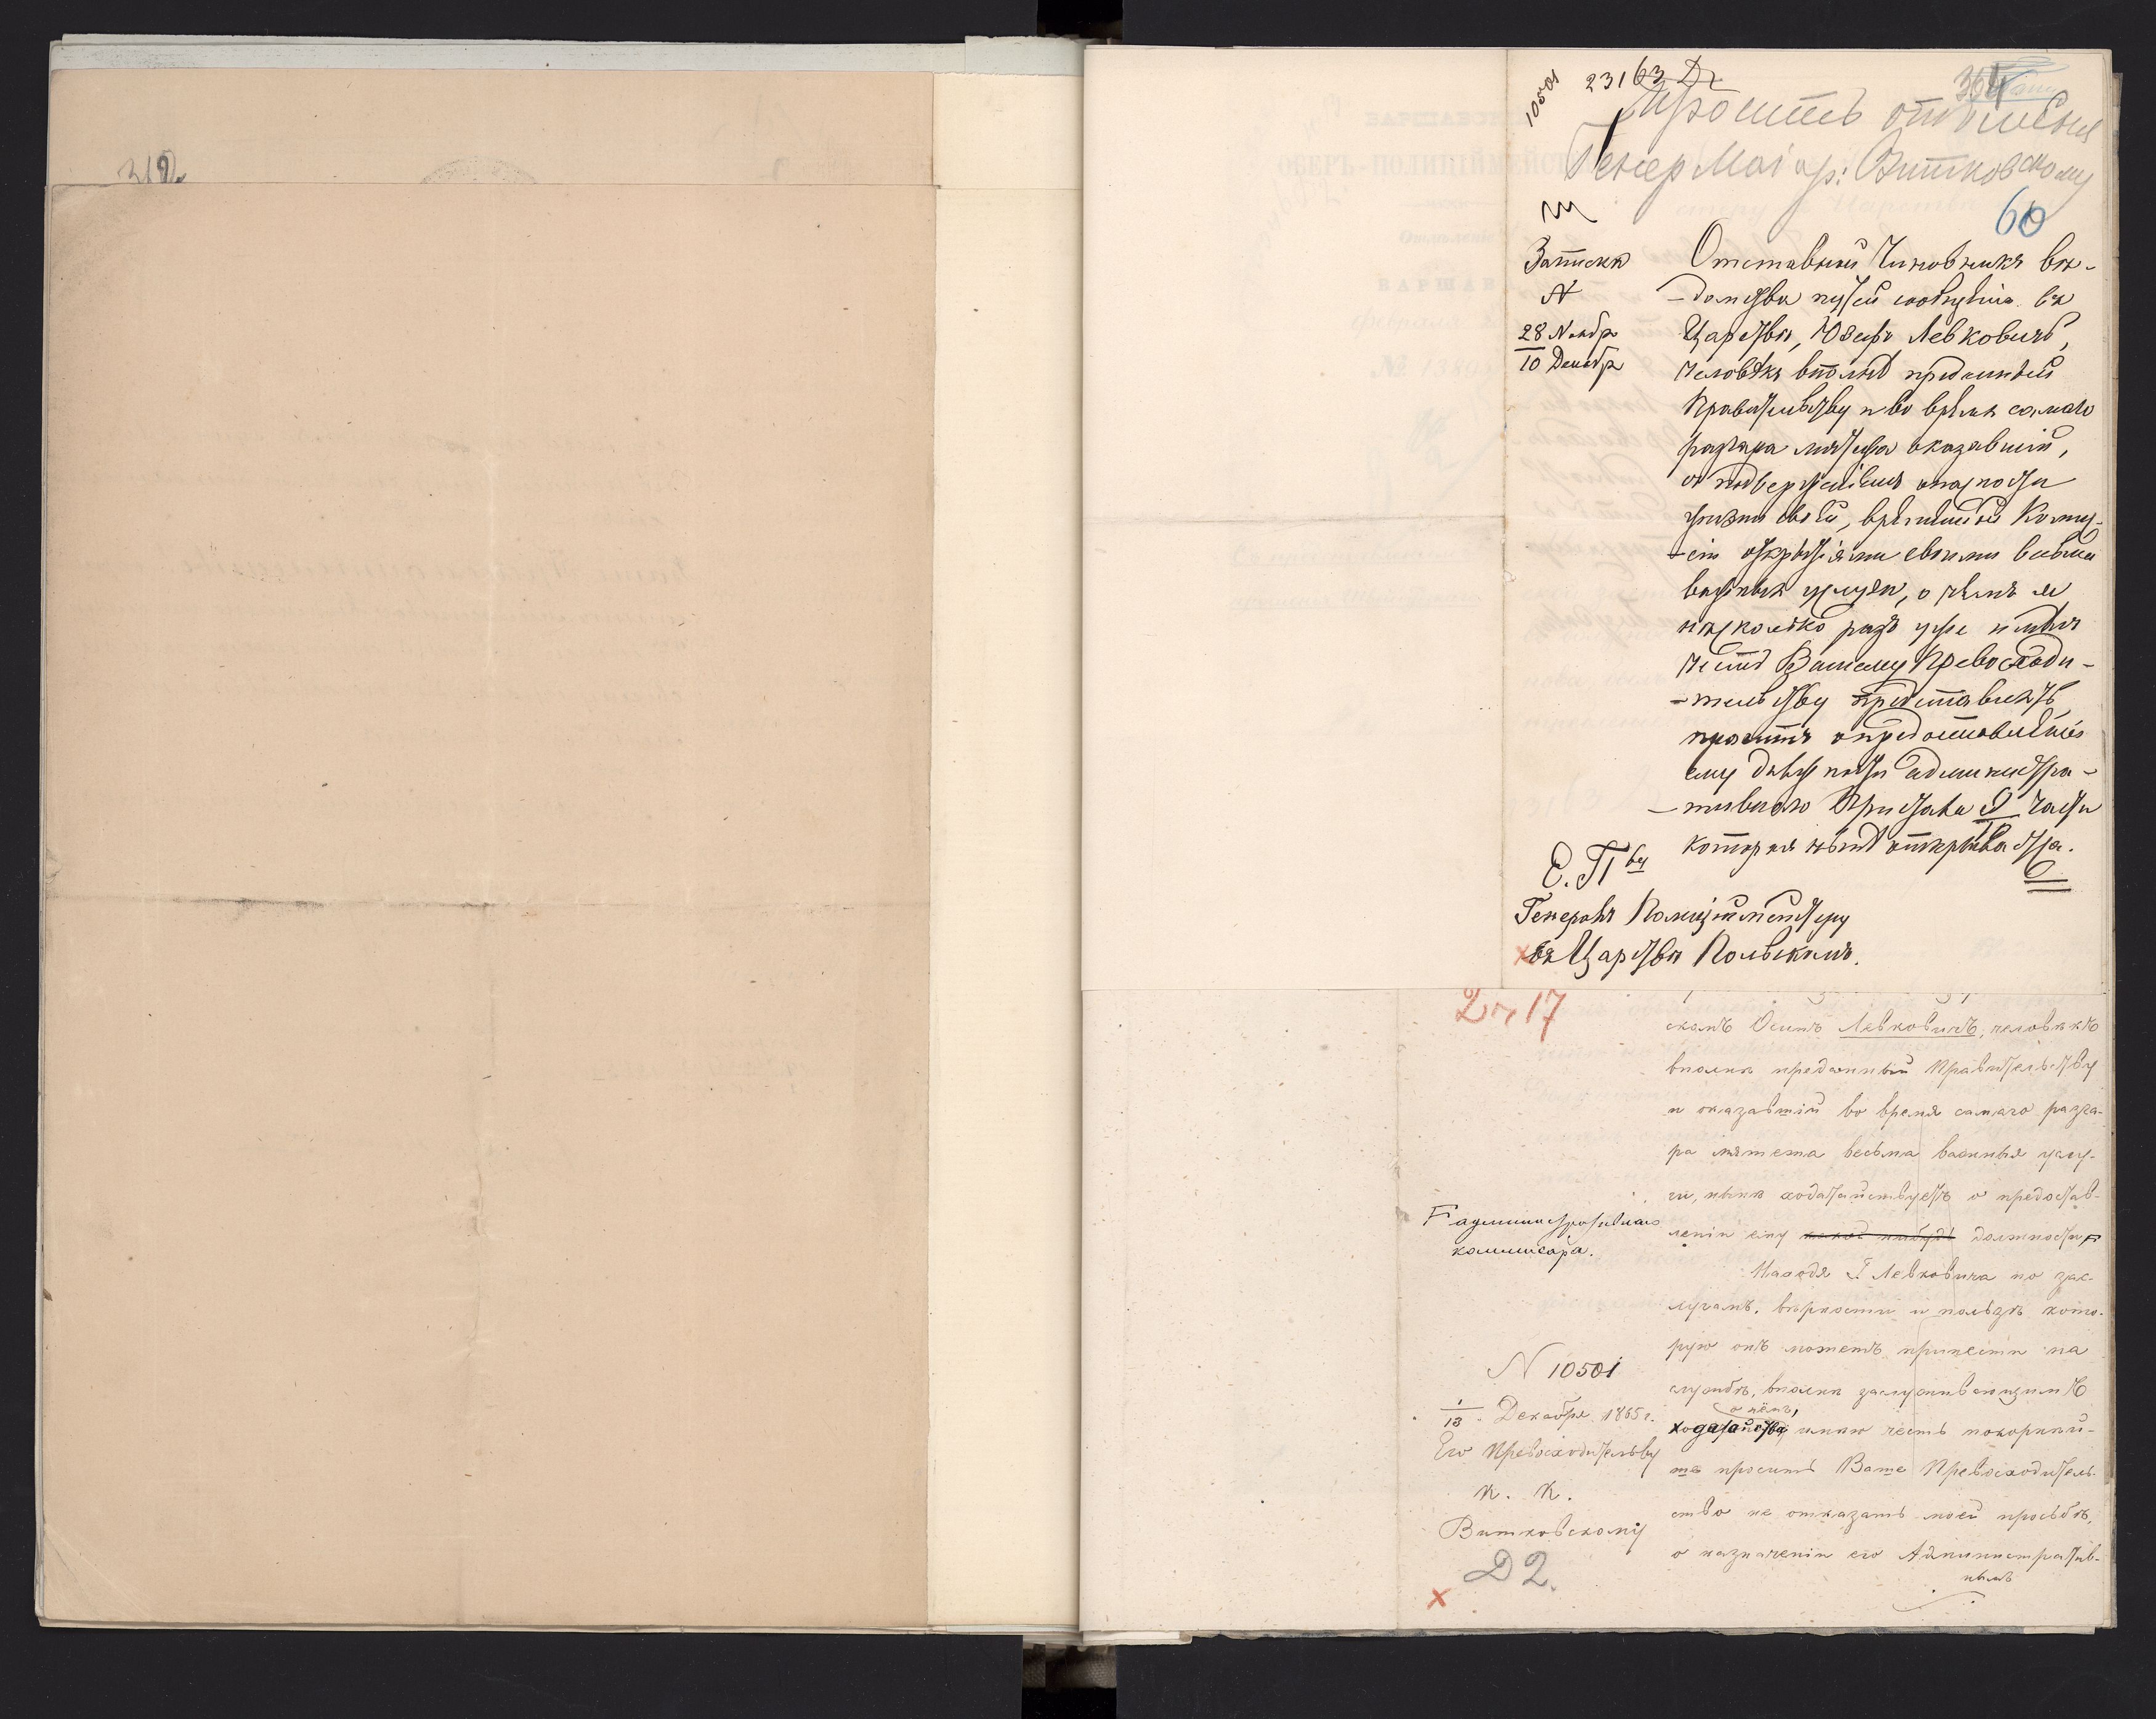 312
10501
23163
364
Просить отношения
Генер Маіор: Витковскому
60
Записка
N
28 Ноябр
10 Декабр
Отставный Чиновникъ вѣ-
-домства путей сообщенія въ
Царствѣ, Юзефъ Левковичъ,
человѣкъ вполнѣ преданный
Правительству и во время самаго
разгара мятежа оказавшій,
съ подверженіемъ опасности
жизни своей, временной Коми-
-сіи открытіями своими весьма
важныя услуги, о чемъ я
нѣсколько разъ уже имѣлъ
честь Вашему Превосходи-
-тельству представлять,
проситъ о предоставленіи
ему должности администра-
-тивного Пристава части
которая нынѣ открывается.
Е. Пву
Генералъ Полицiймейстеру
въ Царствѣ Польскомъ.
2 17
скомъ Осипъ Левковичъ, человѣкъ
вполнѣ преданный Правительству
и оказавшій во время самаго разга-
ра мятежа весьма важныя услу-
ги, нынѣ ходатайствуетъ о предостав-
леніи ему какой нибудь должности
F административнаго
коммисара.
Находя Г. Левковича по зас-
лугамъ, вѣрности и пользѣ кото-
рую онъ можетъ принести на
службѣ, вполнѣ заслуживающимъ
о нёмъ,
ходатайства, имѣю честь покорнѣй-
ше просить Ваше Превосходитель-
ство не отказать моей просьбѣ,
о назначеніи его Административ-
нымъ
N 10501
1/13 Декабря 1865 г.
Его Превосходительству
К. К.
Витковскому
Д 2.